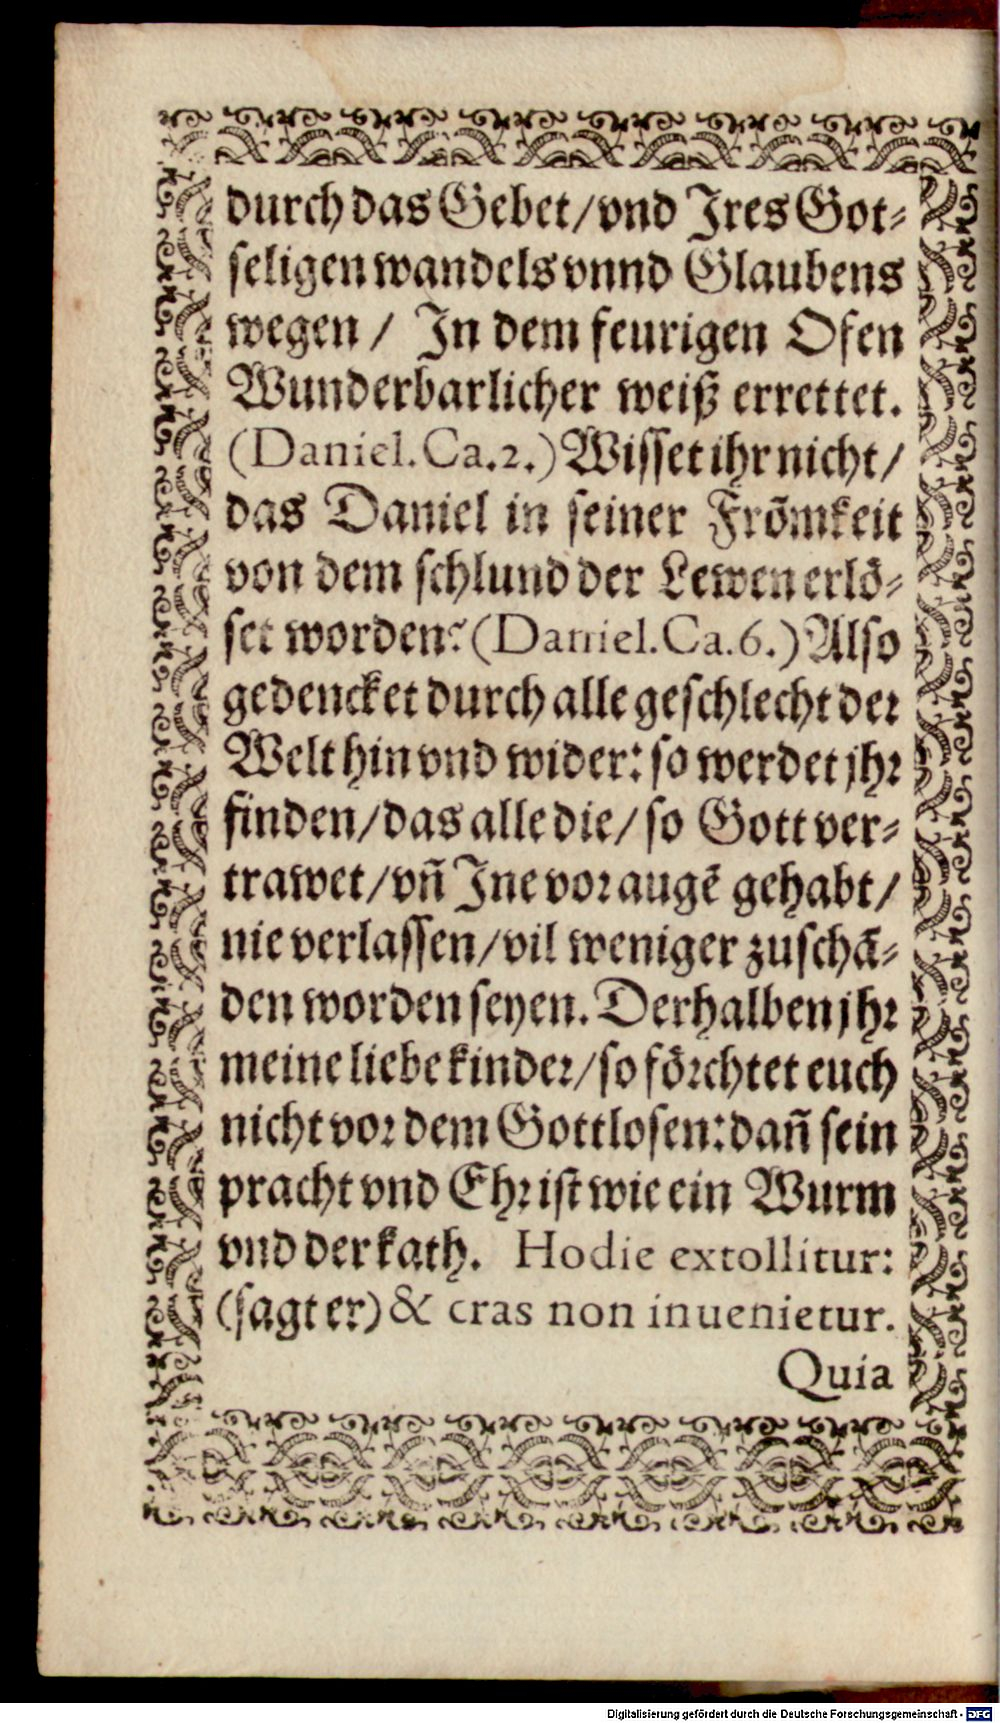 durch das Gebet/ vnd Jres Got⸗
seligen wandels vnnd Glaubens
wegen / Jn dem feurigen Ofen
Wunderbarlicher weiß errettet.
(Daniel. Ca. 2.) Wisset ihr nicht /
das Daniel in seiner Frömkeit
von dem schlund der Lewen erlö⸗
set worden? (Daniel. Ca. 6.) Also
gedencket durch alle geschlecht der
Welt hin vnd wider: so werdet jhr
finden/ das alle die/ so Gott ver⸗
trawet/ vñ Jne vor augē gehabt/
nie verlassen/ vil weniger zuschā⸗
den worden seyen. Derhalben jhr
meine liebe kinder/ so förchtet euch
nicht vor dem Gottlosen: dañ sein
pracht vnd Ehr ist wie ein Wurm
vnd der kath. Hodie extollitur:
(sagt er) & cras non inuenietur.
Quia
Digitalisierung gefördert durch die Deutsche Forschungsgemeinschaft - DFG